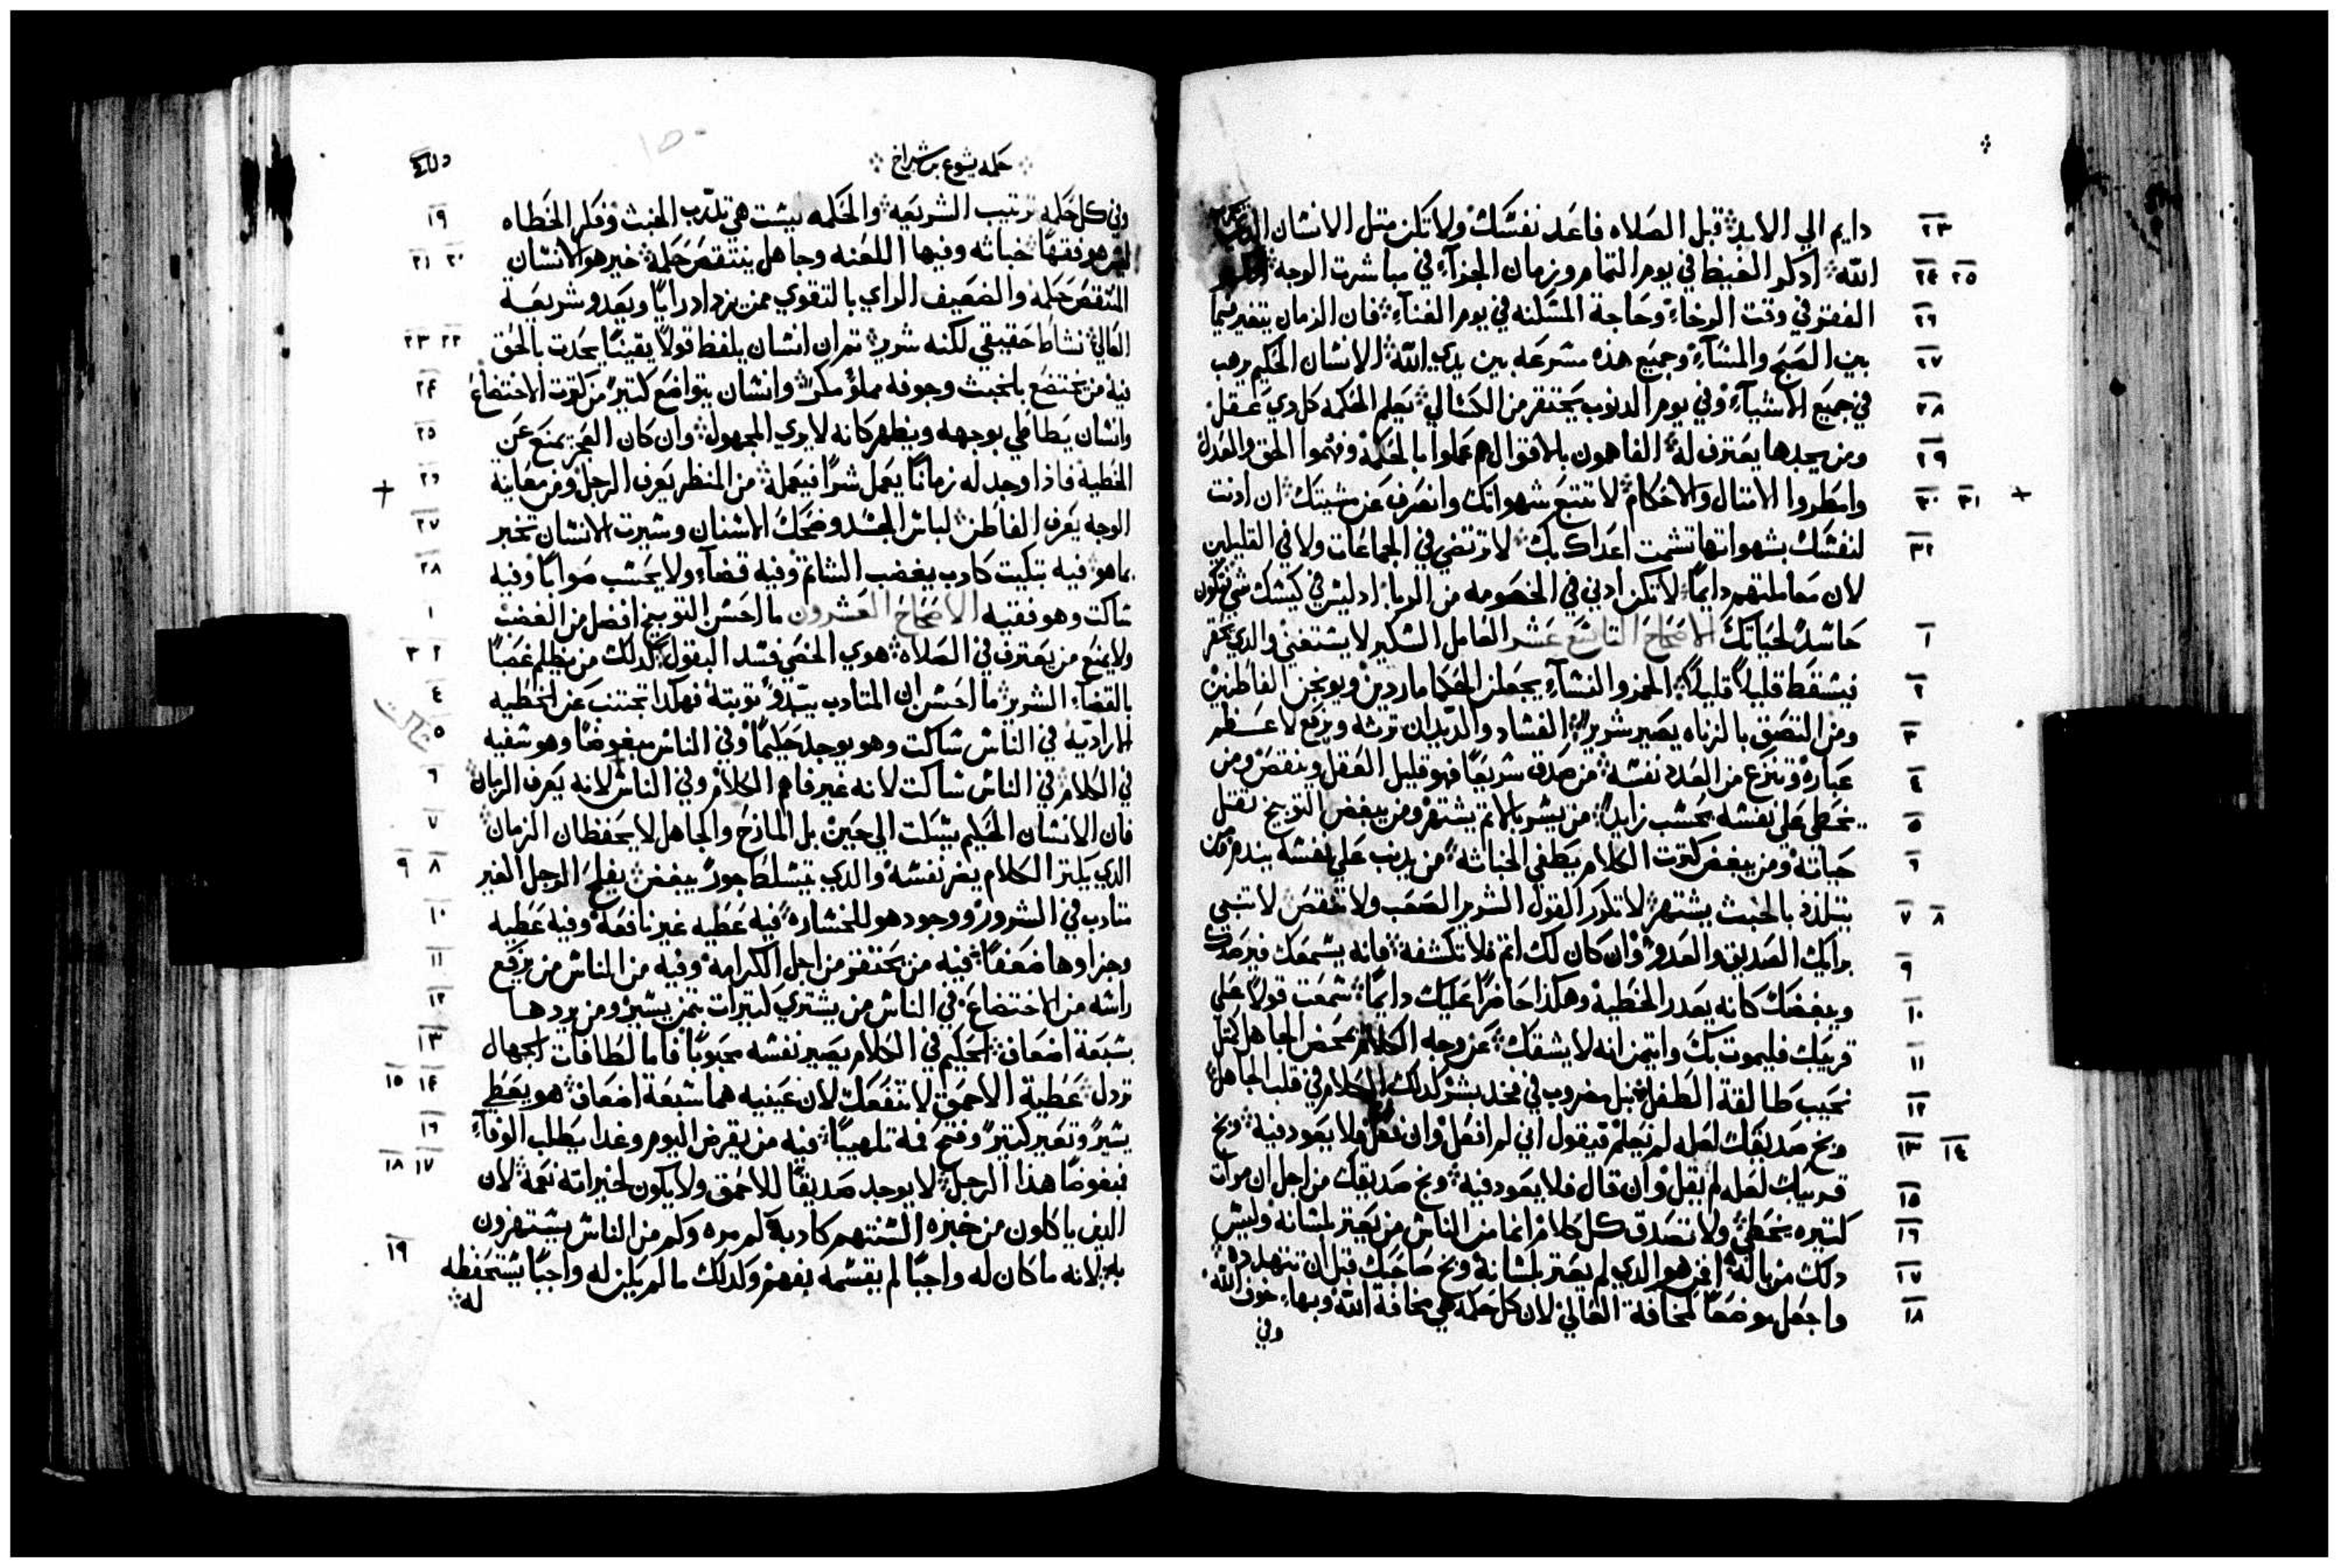 ٢٣ دايم الي الابد قبل الصلاه فاعد نفسك ولا تكن متل الانسان
٢٤ ٢٥ الله ادكر الغيظ في يوم التمام وزمان الجزآء في مباشرت الوجه
٢٦ الفقر في وقت الرخاء وحاجة المسكنه في يوم الغناء فان الزمان يتغير فيما
٢٧ بين الصبح والمسآء وجميع هذه مسرعه بين يدي الله الانسان الحكيم يرهب
٢٨ في جميع الاشيآء وفي يوم الدنوب يحتقر من الكسالي تعلم الحكمه كل دي عقل
٢٩ ومن يجدها يعترف له الفاهمون بالاقوال هم عملوا بالحكمه وفهموا الحق والعدل
٣٠ ٣١ وامطروا الامتال والاحكام لا تتبع شهواتك وانصرف عن مشيتك ان ادنت
٣٢ لنفسك بشهواتها تشمت اعداك بك لا ترتضي في الجماعات ولا في القليلين
لان معاملتهم دايما لا تكن ادني في الخصومه من الربا اد ليس في كيسك شي فتكون
١ حاسد لحياتك الاصحاح التاسع عشر العامل السكير لا يستغني والدي يحتقر
٢ فيسقط قليلا قليلا الخمر والنسآء يجعلن الحكما ماردين ويوبخن الفاطنين
٣ ومن التصق بالزناه يصير شرير الفساد والديدان ترثه ويرفع لاعظم
٤ عباره وتنزع من العدد نفسه من صدق سريعا فهو قليل العقل وينقص ومن
٥ يخطي علي نفسه يحسب زايدا من يسر بالاتم يشتهر ومن يبغض التوبيخ تقتل
٦ حياته ومن يبغض كترت الكلام يطفي الخباثه من يدنب علي نفسه يندم ومن
٧ ٨ يتلدد بالخبث يشتهر لا تكرر القول الشرير الصعب ولا تنقص لا تنبي
٩ برايك الصديق والعدو وان كان لك اتم فلا تكشفه فانه يسمعك فيرصدك
١٠ ويبغضك كانه يعدر الخطيه وهكذا حاضرا عليك دايما سمعت قولا علي
١١ قريبك فليموت بك وايتمن انه لا يشقك عن وجه الكلام يمخض الجاهل كمتل
١٢ نحيب طالقة الطفل نبل مضروب في فخد بشر كدلك الكلام في قلب الجاهل
١٣ ١٤ وبخ صديقك لعله لم يعلم فيقول اني لم افعل وان فعل فلا يعود فيه وبخ
١٥ قريبك لعله لم يقل وان قال فلا يعود فيه وبخ صديقك من اجل ان مرات
١٦ كتيره يخطي ولا تصدق كل كلام انما من الناس من يعتر بلسانه وليس
١٧ دلك من باله افمن هو الدي لم يعتر بلسانه وبخ صاحبك قبل ان تتهدده
١٨ واجعل موضعا لمخافة العالي لان كل حكمه هي مخافة الله وبهاء خوف الله
وفي
حكمه يشوع بن شيراخ
١٩ وفي كل حكمه ترتيب الشريعه والحكمه ليست هي تادب الخبث وفكر الخطاه
٢٠ ٢١ ليس هو فقها خباثه وفيها اللعنه وجاهل ينتقص حكمه خير هو الانسان
المنتقص حكمه والضعيف الراي بالتقوي ممن يزداد رايا ويعدو شريعة
٢٢ ٢٣ العالي نشاط حقيقي لكنه شرير تم ان انسان يلفظ قولا يقينا يحدت بالحق
٢٤ فيه من يختضع بالخبث وجوفه مملؤ مكر وانسان يتواضع كتير من كترت الاختضاع
٢٥ وانسان يطاطي بوجهه ويظهر كانه لا يري المجهول وان كان العجز يمنع عن
٢٦ الخطية فاذا وجد له زمانا يعمل شرا فيعمله من المنظر يعرف الرجل ومن معاينة
٢٧ الوجه يعرف الفاطن لباس الجسد وضحك الاسنان وسيرت الانسان تخبر
٢٨ بما هو فيه تبكيت كادب بغضب الشاتم وفيه قضآء ولا يحسب صوابا وفيه
١ ساكت وهو فقيه الاصحاح العشرون ما احسن التوبيخ افضل من الغضب
٢ ٣ ولا يمنع من يعترف في الصلاه هوي الخصي فسد البتول كدلك من يظلم غصبا
٤ بالقضاء الشرير ما احسن ان المتادب يبدو توبته فهكدا تجتنب عن الخطيه
٥ الاراديه في الناس ساكت وهو يوجد حكيما وفي الناس مبغوضا وهو سفيه
ساكت
٦ في الكلام في الناس ساكت لانه غير فاهم الكلام وفي الناس لانه يعرف الزمان
٧ فان الانسان الحكيم يسكت الي حين بل المازح والجاهل لا يحفظان الزمان
٨ ٩ الدي يكتر الكلام يضر نفسه والدي يتسلط جور يبغض يفلح الرجل الغير
١٠ متادب في الشرور ووجود هو للخساره فيه عطيه غير نافعة وفيه عطيه
١١ وجزاوها ضعفا فيه من يحتقر من اجل الكرامه وفيه من الناس من يرفع
١٢ راسه من الاختضاع في الناس من يشتري كتيرات بتمن يسير ومن يردها
١٣ بسبعة اضعاف الحكيم في الكلام يصير نفسه محبوبا فاما لطافات الجهال
١٤ ١٥ تردل عطية الاحمق لا تنفعك لان عينيه هما سبعة اضعاف هو يعطي
١٦ يسير وتعير كتير وفتح فمه تلهيبا فيه من يقرض اليوم وغدا يطلب الوفآء
١٧ ١٨ مبغوضا هذا الرجل لا يوجد صديقا للاحمق ولا يكون لخيراته نعمة لان
الدين ياكلون من خبزه السنتهم كادبه كم مره وكم من الناس يستهزون
١٩ به لانه ما كان له واجبا لم يقسمه بفهم وكدلك ما لم يكن له واجبا يستحفظه
له